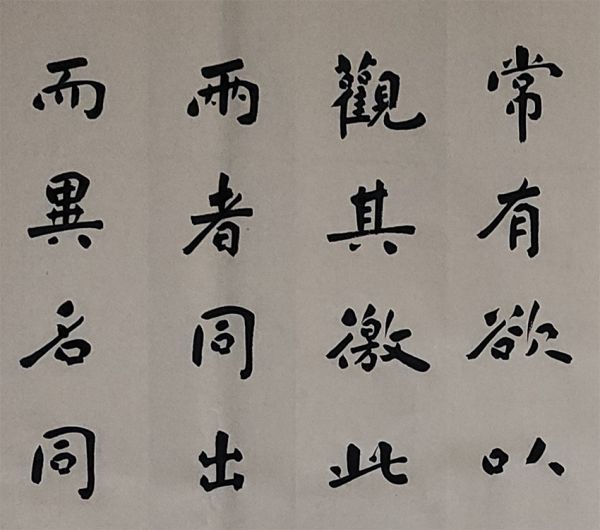 常有欲以
觀其徼此
兩者同出
而異名同